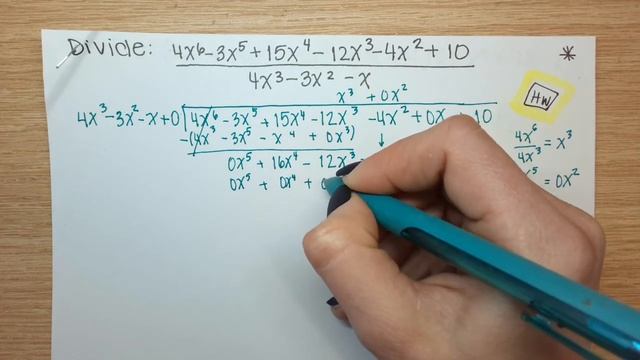 Divide: 4x⁶-3x⁵+15x⁴-12x³-4x²+10 *
4x³-3x²-x
HW
x³ + 0x²
4x³-3x²-x+0 4x⁶ -3x⁵ +15x⁴ -12x³ -4x² +0x +10
-(4x³ -3x⁵ -x⁴ +0x³) ↓
0x⁵ + 16x⁴ - 12x³
0x⁵ + 0x⁴ +
4x⁶/4x³ = x³
x⁵ = 0x²